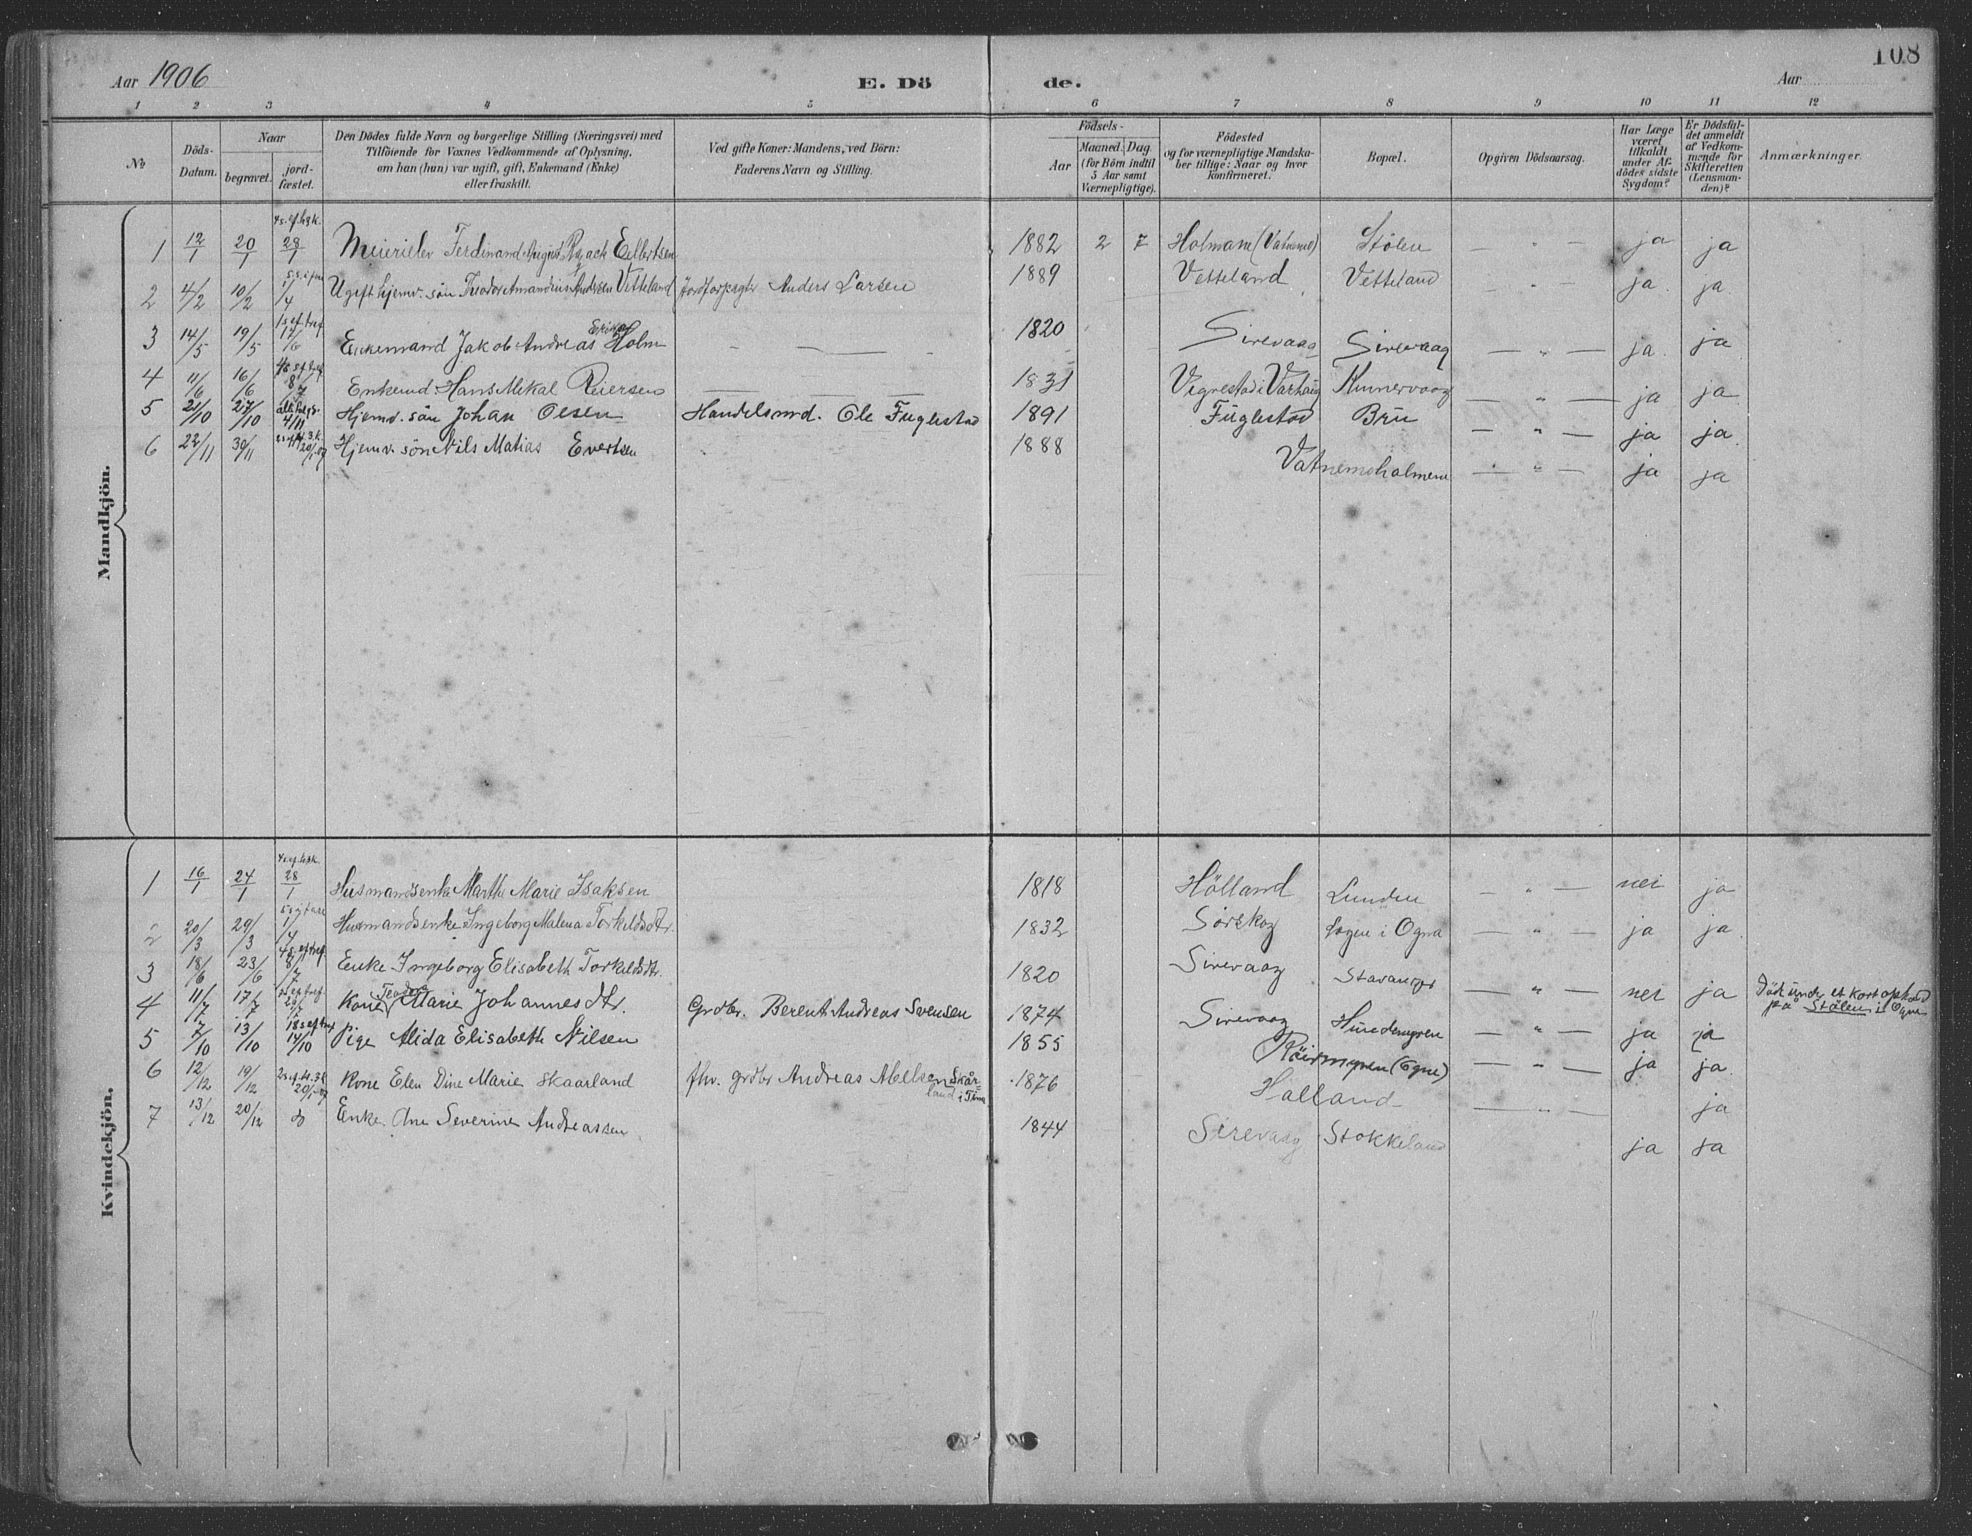 108
Aar 1906 E. Dö de. Aar
1 2 3 4 5 6 7 8 9 10 11 12
No
Döds-Datum.
Naar begravet. jord-fæstet.
Den Dödes fulde Navn og borgerlige Stilling (Næringsvei) med
Tilföiende for Voxnes Vedkommende af Oplysning,
om han (hun) var ugift, gift, Enkemand (Enke)
eller fraskilt.
Ved gifte Koner: Mandens, ved Börn:
Faderens Navn og Stilling.
Födsels-
Aar Maaned. Dag.
(for Börn indtil
5 Aar samt
Værnepligtige).
Födested
og for værnepligtige Mandska-
ber tillige: Naar og hvor
konfirmeret.
Bopæl.
Opgiven Dödsaarsag.
Har Læge
været
tilkaldt
under Af-
dödes sidste
Sygdom?
Er Dödsfal-
det anmeldt
af Vedkom-
mende for
Skifteretten
(Lensman-
den)?
Anmærkninger.
Mandkjön.
4 s. ef. h3k.
1 12/1 20/1 28/1 Meierielev Ferdinand August Eilertsen 1882 2 7 Holmane (Vatnemo) Stölen — " — ja ja
2 4/2 10/2 1/4 Ugift hjemv. sön Teodor Amandius Andersen Vetteland Jordforpagter Anders Larsen 1889 Vetteland Vetteland — " — ja. ja.
3 14/5 19/5 17/6 Enkemand Jakob Andreas Holm — — — 1820 Sirevaag Sirevaag — " — ja. ja
4 11/6 16/6 8/7 Enkemd. Hans Mikal Reiersen — — 1831 Vigrestad i Varhaug Kunnervaag — " — ja ja
5 21/10 27/10 4/11 Hjemv. sön Johan Olsen Handelsmd. Ole Fuglestad 1891 Fuglestad Bru — " — ja ja.
6 22/11 30/11 20/1-07 Hjemv. sön Nils Matias Evertsen 1888 Vatnemoholmene — " — ja ja
Kvindekjön.
4 s. ef. h3k.
1 16/1 24/1 28/1 Husmandsenke Marthe Marie Isaksen 1818 Hölland Lunden — " — nei ja
2 20/3 29/3 1/4 Husmandsenke Ingeborg Malena Torkildsdtr. 1832 Sörskog Lægen i Ogna — " — ja ja.
4 s. ef tref
3 18/6 23/6 8/7 Enke Ingeborg Elisabeth Torkildsdtr. 1820 Sirevaag Stavanger — " — nei ja Död under et kort ophold
på Stölen i Ogne
4 11/7 17/7 Kone Teodora Marie Johannesdtr. Grdbr. Berent Andreas Svensen 1874 Sirevaag Hundemyren — " — ja ja
18 s ef tref
5 7/10 13/10 14/10 Pige Alida Elisabeth Nilsen 1855 Röirmyren (Ogne) — " — ja ja.
6 12/12 19/12 20/1-07 Kone Elen Dine Marie Skaarland fhv. grdbr Andreas Skår-
land i Time 1876 Halland — " — ja
7 13/12 20/12 do Enke. Ane Severine Andreassen. 1844 Sirevaag Stokkeland ja ja